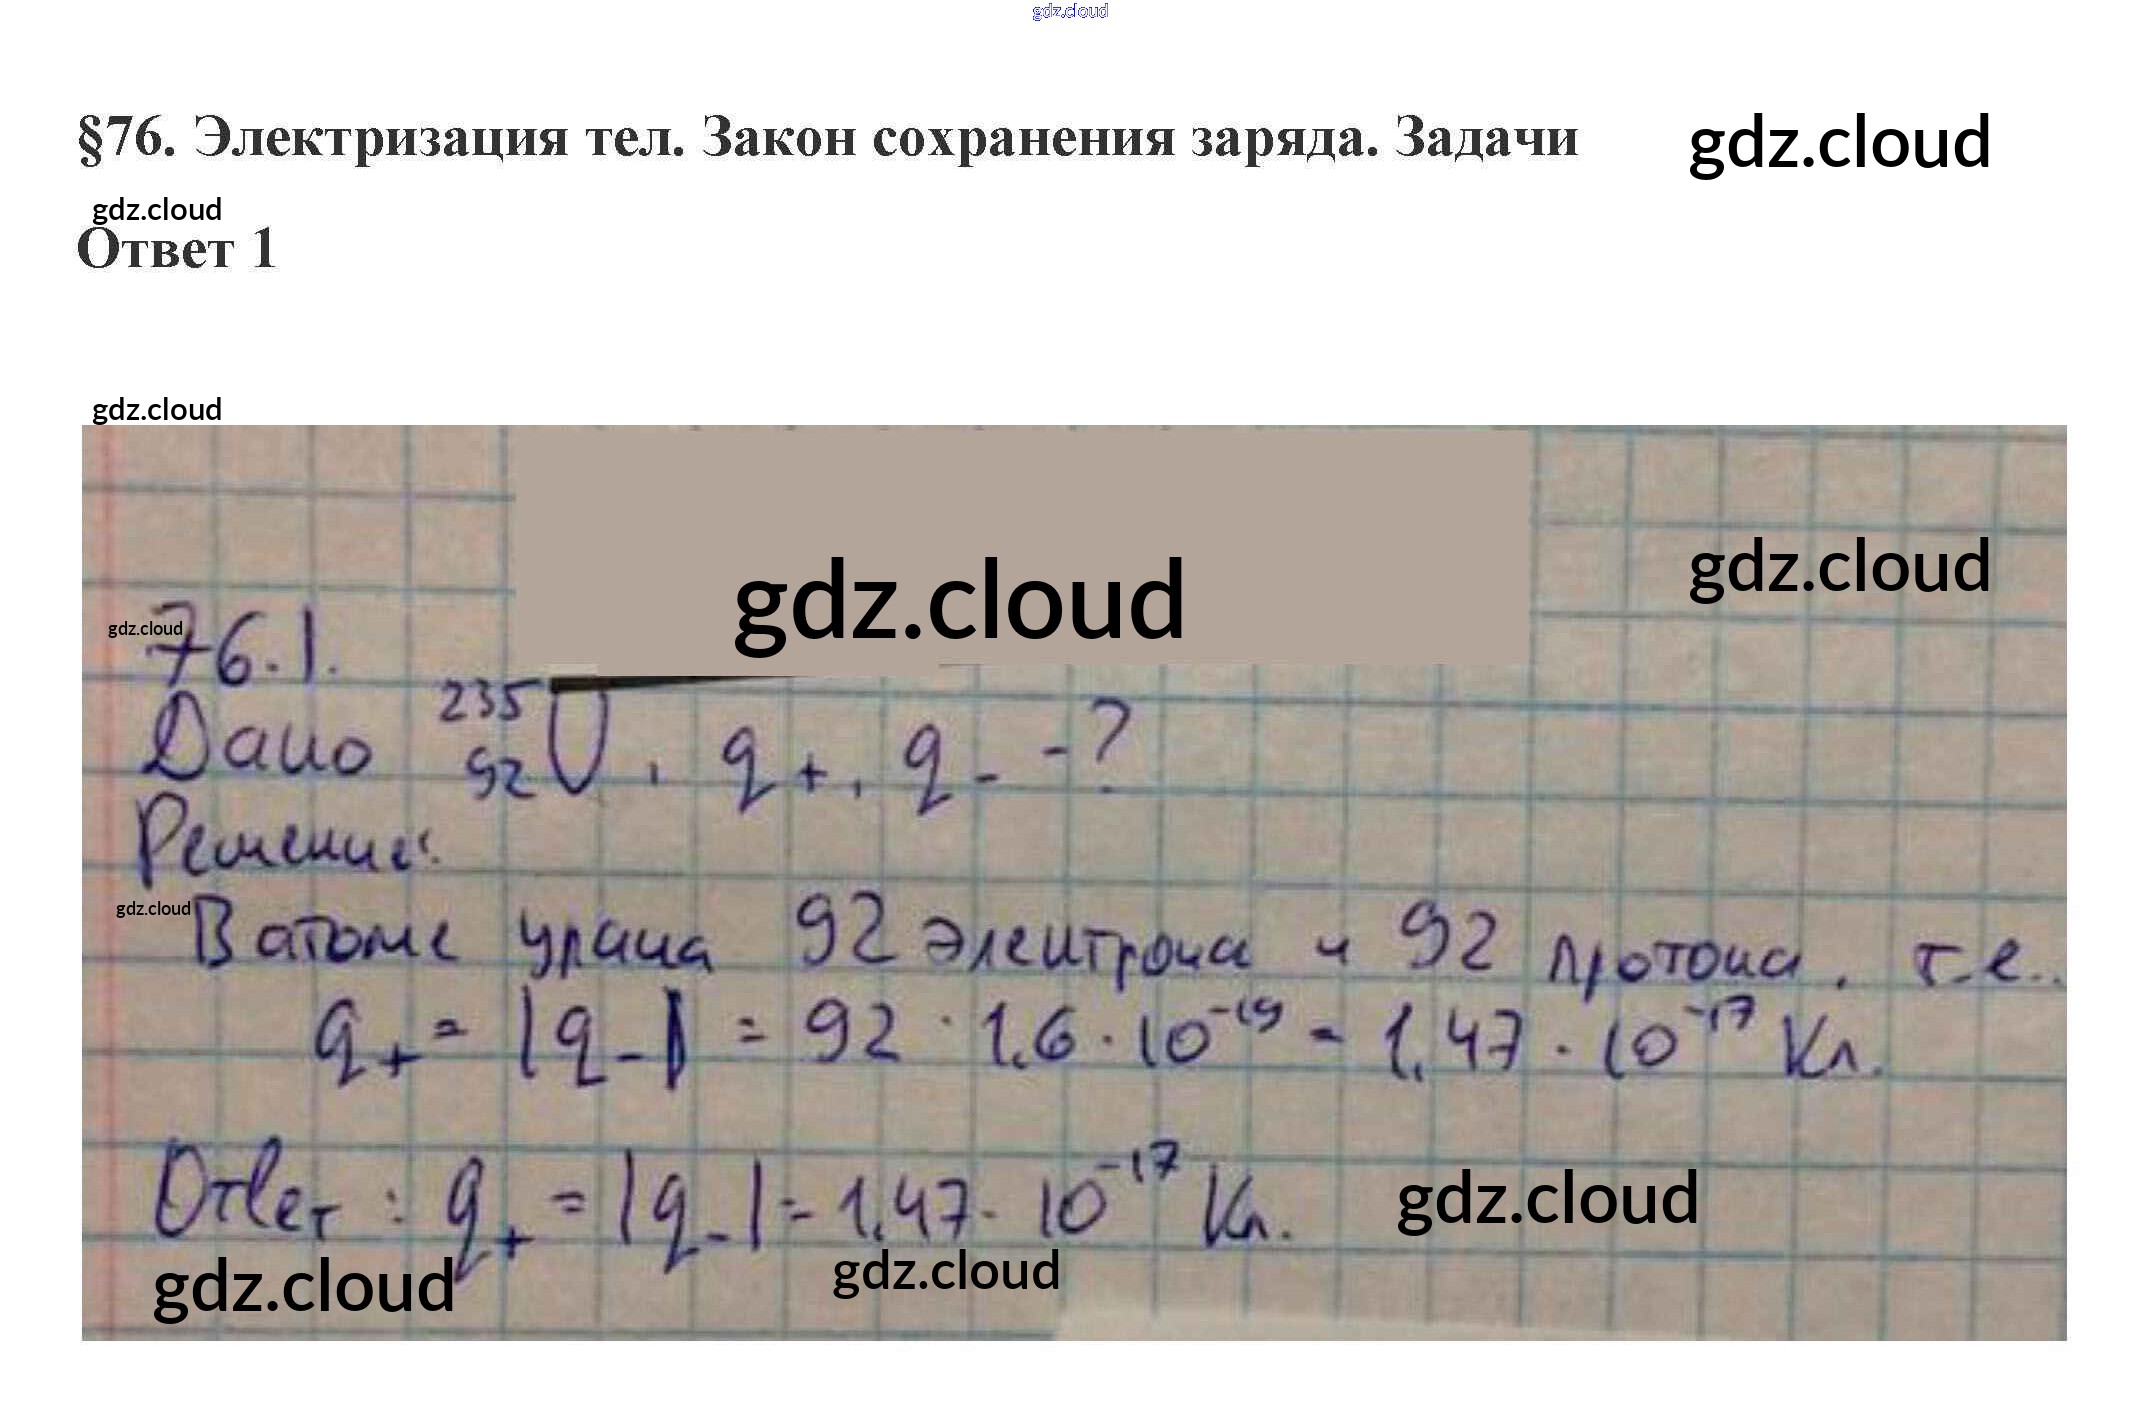 gdz.cloud
§76. Электризация тел. Закон сохранения заряда. Задачи
gdz.cloud
gdz.cloud
Ответ 1
gdz.cloud
gdz.cloud
gdz.cloud
gdz.cloud
76.1.
Дано ²³⁵₉₂U, q₊, q₋ -?
Решение:
gdz.cloud
В атоме урана 92 электрона и 92 протона, т.е..
q₊ = |q₋| = 92 · 1,6 · 10⁻¹⁹ = 1,47 · 10⁻¹⁷ Кл.
Ответ: q₊ = |q₋| = 1,47 · 10⁻¹⁷ Кл.
gdz.cloud
gdz.cloud
gdz.cloud